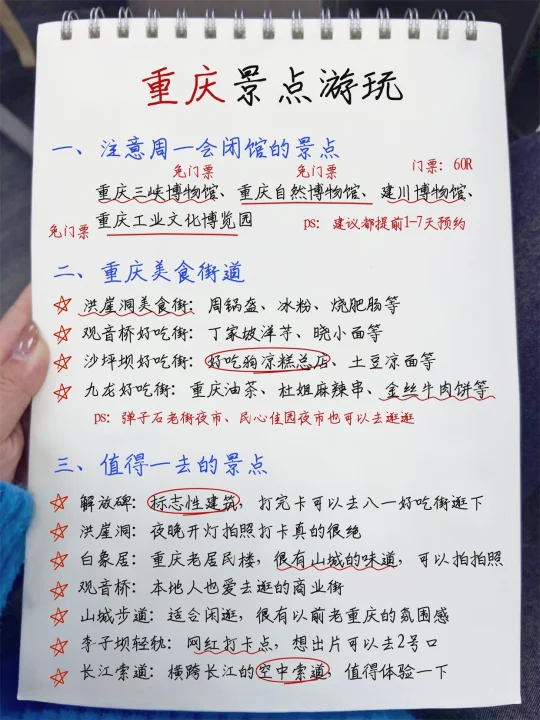 重庆景点游玩
一、注意周一会闭馆的景点
免门票 免门票 门票：60R
重庆三峡博物馆、重庆自然博物馆、建川博物馆、
免门票 重庆工业文化博览园 ps: 建议都提前1-7天预约
二、重庆美食街道
洪崖洞美食街：周锅盔、冰粉、烧肥肠等
观音桥好吃街：丁家坡洋芋、晓小面等
沙坪坝好吃街：好吃狗凉糕总店、土豆凉面等
九龙好吃街：重庆油茶、杜姐麻辣串、金丝牛肉饼等
ps: 弹子石老街夜市、民心佳园夜市也可以去逛逛
三、值得一去的景点
解放碑：标志性建筑，打完卡可以去八一好吃街逛下
洪崖洞：夜晚开灯拍照打卡真的很绝
白象居：重庆老居民楼，很有山城的味道，可以拍拍照
观音桥：本地人也爱去逛的商业街
山城步道：适合闲逛，很有以前老重庆的氛围感
李子坝轻轨：网红打卡点，想出片可以去2号口
长江索道：横跨长江的空中索道，值得体验一下